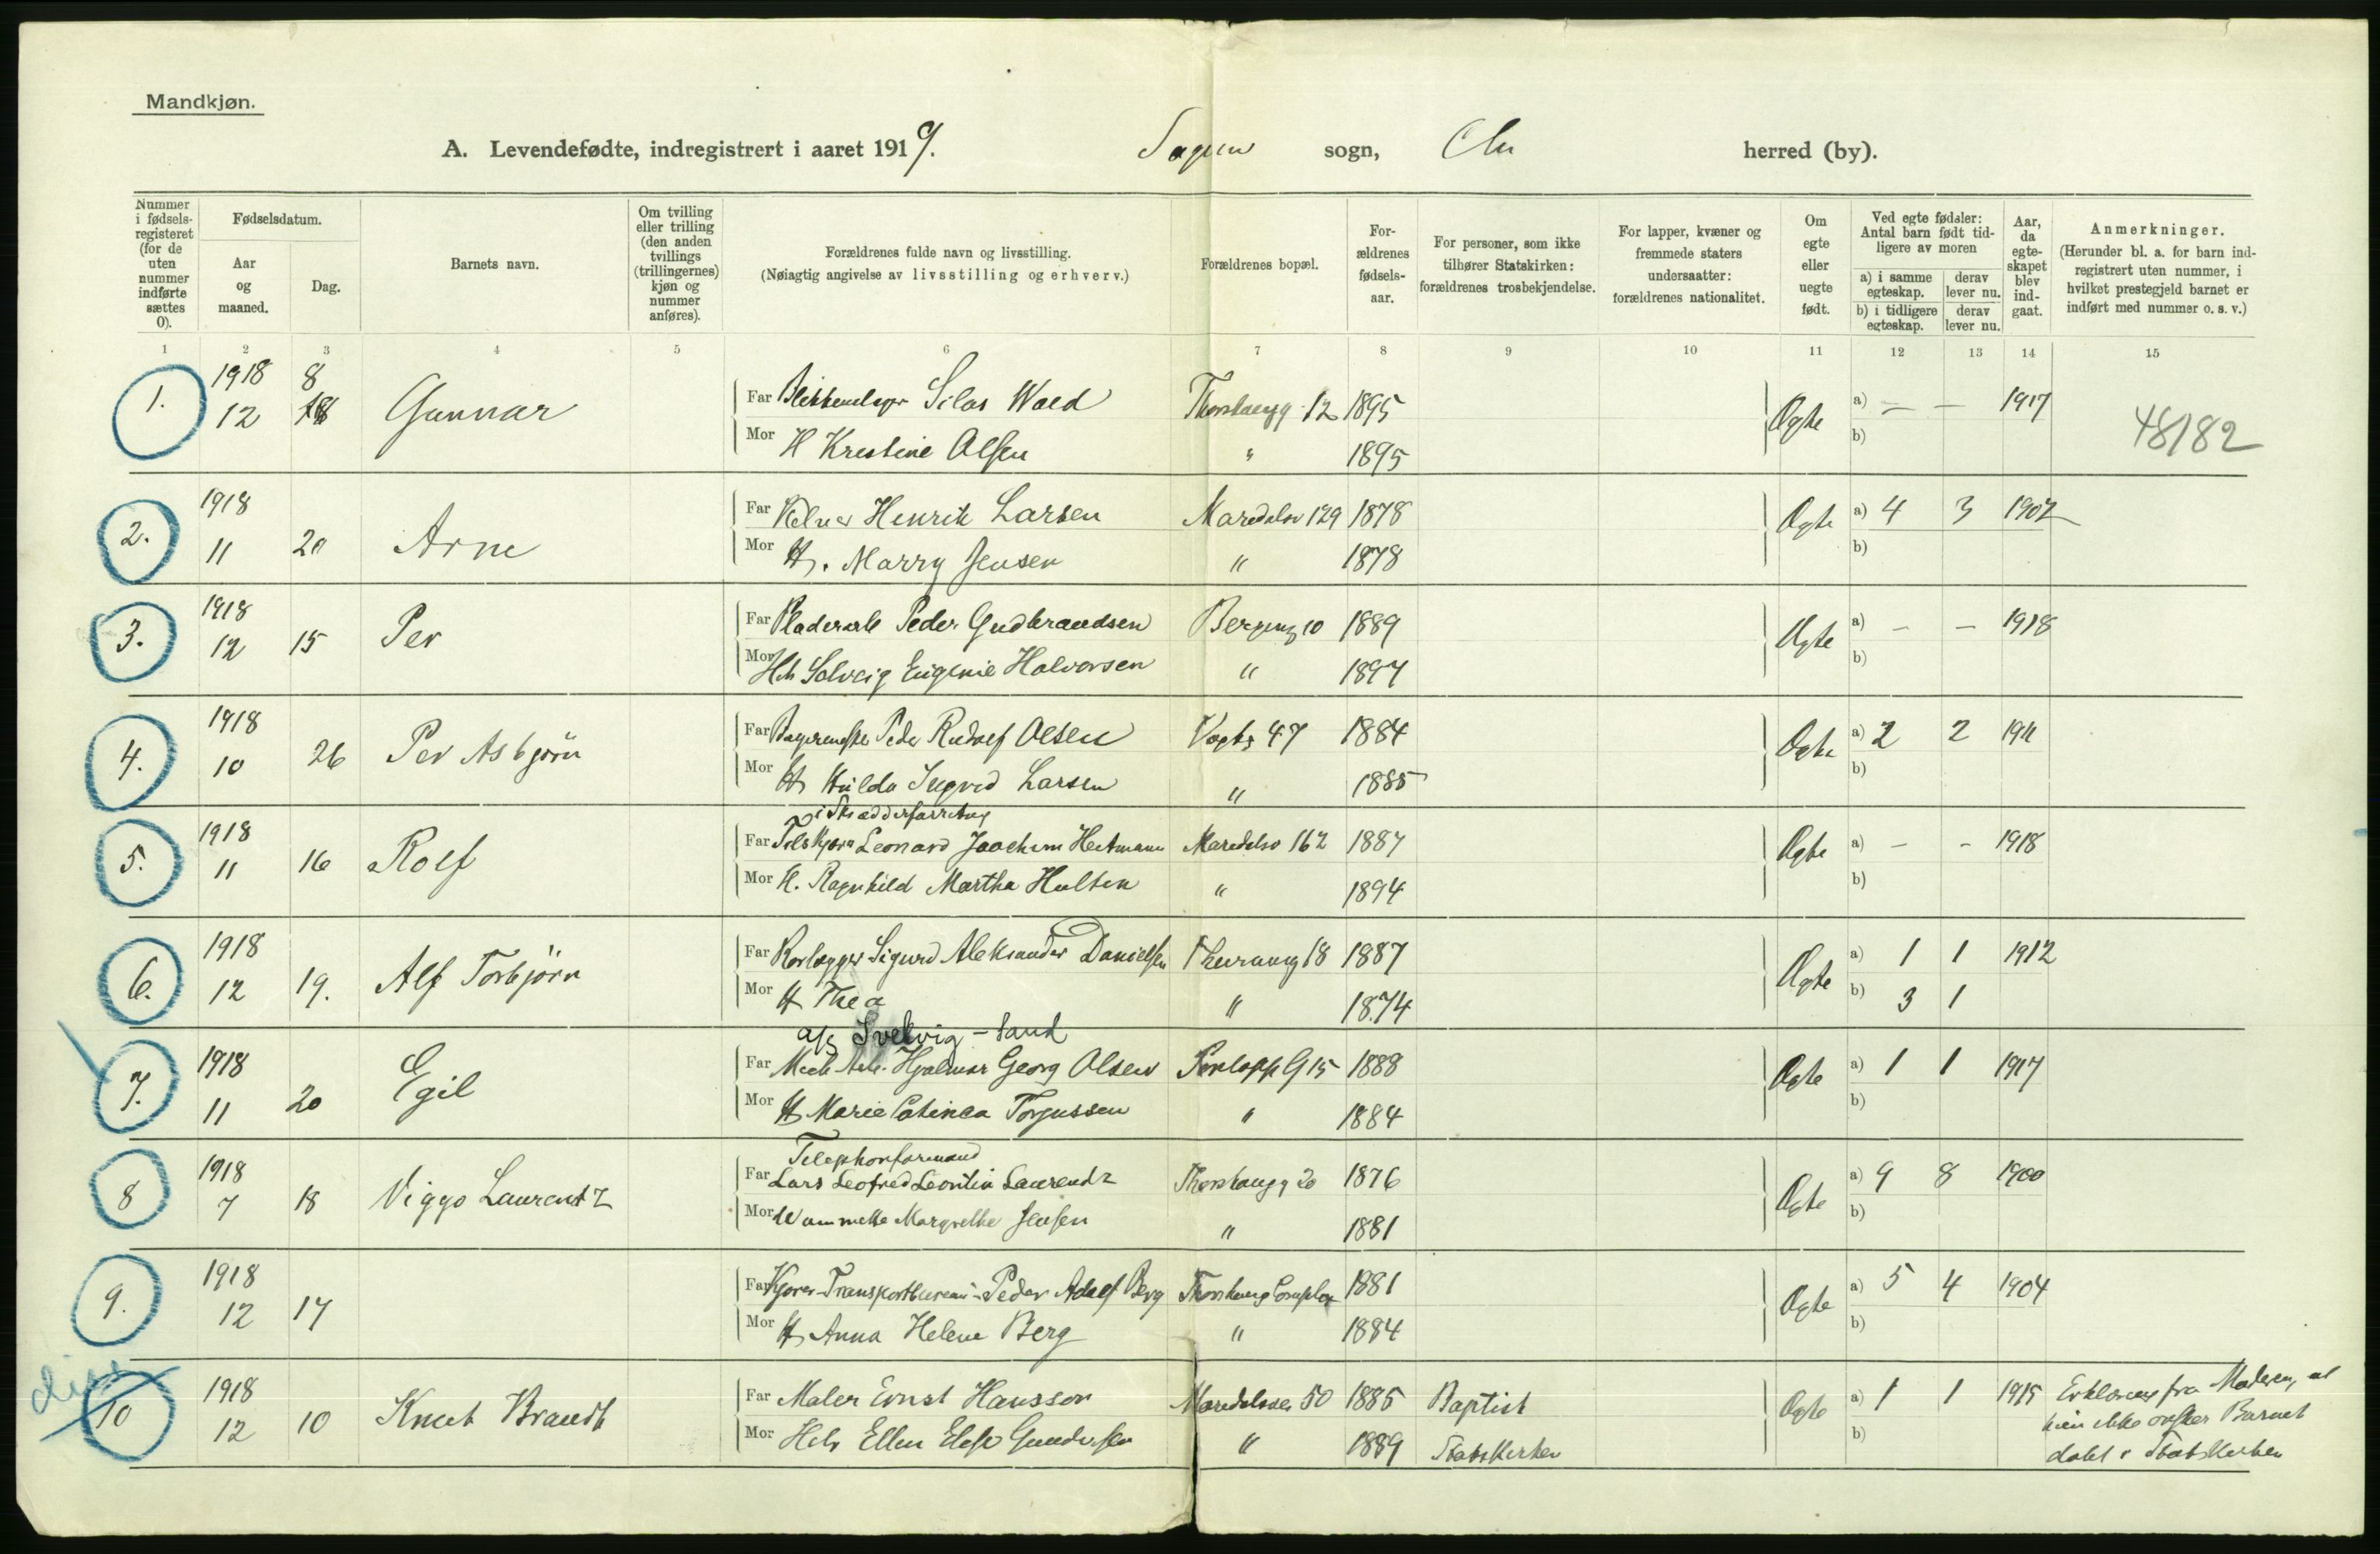 Mandkjøn.
A. Levendefødte, indregistrert i aaret 1919. Sagene sogn, Chr herred (by).
Nummer i fødsels-registeret (for de uten nummer indførte sættes 0).
Fødselsdatum.
Aar og maaned.
Dag.
Barnets navn.
Om tvilling eller trilling (den anden tvillings (trillingernes) kjøn og nummer anføres).
Forældrenes fulde navn og livsstilling.
(Nøiagtig angivelse av livsstilling og erhverv.)
Forældrenes bopæl.
For-ældrenes fødsels-aar.
For personer, som ikke tilhører Statskirken: forældrenes trosbekjendelse.
For lapper, kvæner og fremmede staters undersaatter: forældrenes nationalitet.
Om egte eller uegte født.
Ved egte fødsler: Antal barn født tid-ligere av moren
a) i samme egteskap.
derav lever nu.
b) i tidligere egteskap.
derav lever nu.
Aar, da egte-skapet blev ind-gaat.
Anmerkninger.
(Herunder bl. a. for barn ind-registrert uten nummer, i hvilket prestegjeld barnet er indført med nummer o. s. v.)
1 2 3 4 5 6 7 8 9 10 11 12 13 14 15
1. 1918 12 8 Gunnar Far Silas Wold 12 1895 Ægte a) — — 1917
Mor H Kristine Olsen " 1895 b) 48182
2. 1918 11 20 Arne Far Henrik Larsen Maridalsv 129 1878 Ægte a) 4 3 1902
Mor H. Marry Jensen " 1878 b)
3. 1918 12 15 Per Far Peder Gudbrandsen Bergensg 10 1889 Ægte a) — — 1918
Mor Solveig Eugenie Halvorsen " 1897 b)
4. 1918 10 26 Per Asbjörn Far Peder Rudolf Olsen Vogtsg 47 1884 Ægte a) 2 2 1911
Mor H Hulda Ingrid Larsen " 1885 b)
i Skrædderforretng
5. 1918 11 16 Rolf Far Tilskjærer Leonard Joachim Heitmann Maridalsv 162 1887 Ægte a) - - 1918
Mor H. Ragnhild Martha Hulten " 1894 b)
6. 1918 12 19. Alf Torbjörn Far Rørlægger Sigurd Aleksander Danielsen 18 1887 Ægte a) 1 1 1912
Mor H Thea " 1874 b) 3 1
Svelvig - Sand
7. 1918 11 20 Egil Far Mek Arb. Hjalmar Georg Olsen 15 1888 Ægte a) 1 1 1917
Mor H Marie Catinca Torgussen " 1884 b)
Telephonformand
8 1918 7 18 Viggo Laurentz Far Lars Leofred Leontin Laurendz 20 1876 Ægte a) 9 8 1900
Mor Margrethe Jensen " 1881 b)
9. 1918 12 17 Far Kjører Transportbureau Peder Adolf Berg 1881 Ægte a) 5 4 1904
Mor H Anna Helene Berg " 1884 b)
diss
10 1918 12 10 Knut Brandt Far Maler Ernst Hansson Maridalsvei 50 1885 Baptist Ægte a) 1 1 1915 Erklæring fra Moderen, at
Mor Ellen Elise Gundersen " 1889 Statskirken b) hun ikke ønsker Barnet
døbt i Statskirken